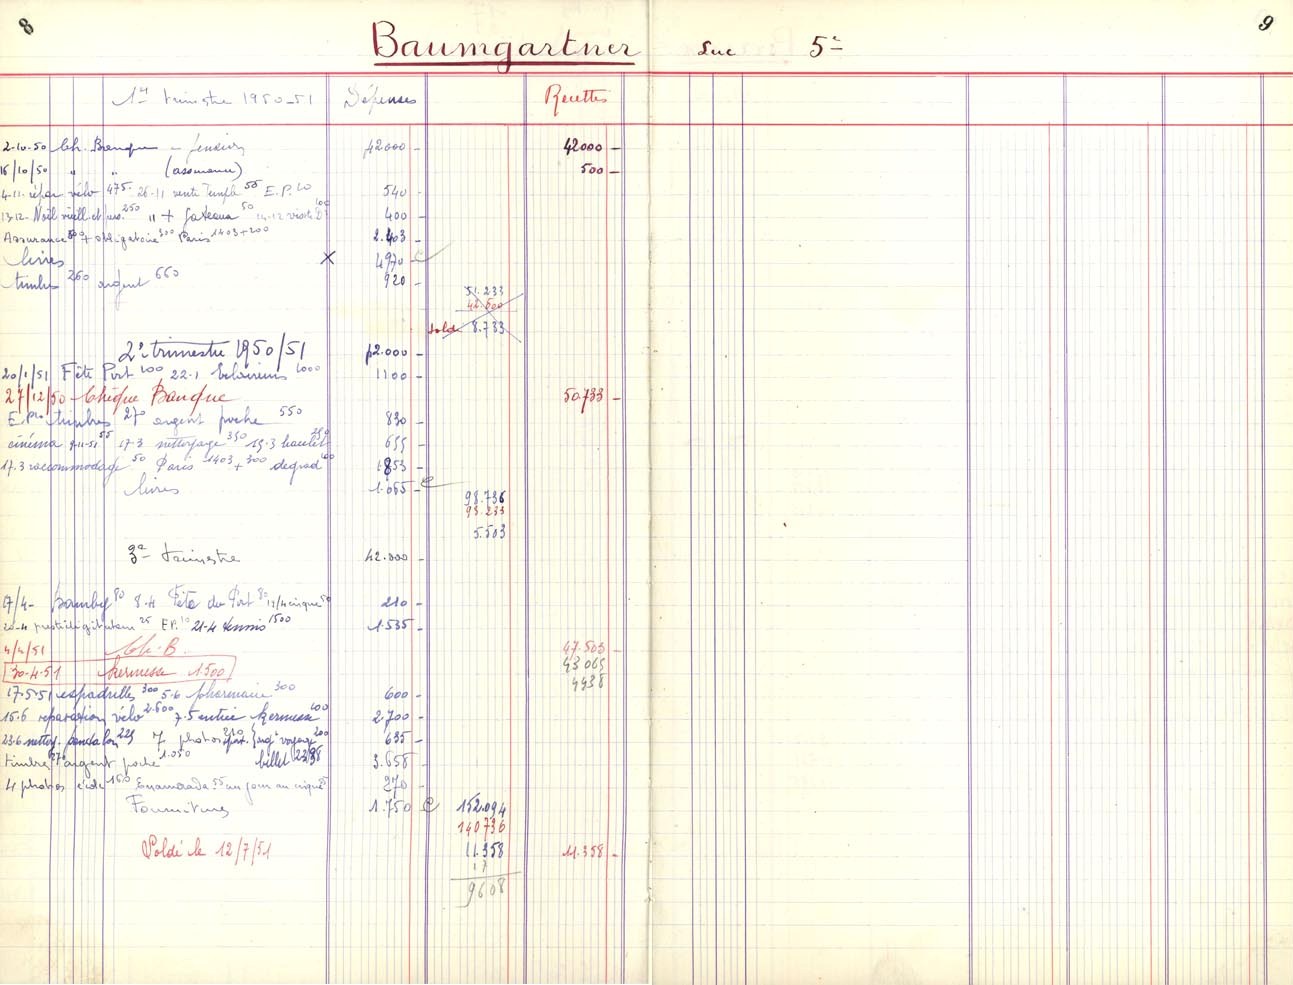 8
9
Baumgartner Luc 5e
1er trimestre 1950-51 Dépenses Recettes
2-10-50 Ch. Banque - pension 42000 - 42000 -
16/10/50 " " (assurance) 500 -
4-11 répar vélo 475. 26-11 vente Timbr 55 E.P. 10 540 -
13-12 Noël vieill. 250 " + gateaux 50 14-12 visite Dr 100 400 -
Assurance + obligatoire 300 Paris 1403+200 2.403 -
livres × 4970 -
timbres 260 argent 660 920 -
51.233
42.500
solde 8.733
2e trimestre 1950/51 42.000 -
20/1/51 Fête Port 100 22-1 Eclaireurs 1000 1100 -
27/12/50 Chèque Banque 50.733 -
E.P. 10 timbres 270 argent poche 550 830 -
cinéma 9-11-51 55 17-3 nettoyage 350 19-3 250 655 -
17.3 raccommodage 50 Paris 1403+300 degrad 100 1853 -
livres 1.065 -
98.736
93.233
5.503
3e trimestre 42.000 -
17/4- 80 8-4 Fête du Port 80 13/4 cirque 50 210 -
20-4 prestidigitateur 25 E.P. 10 21-4 tennis 1500 1.535 -
4/4/51 Ch. B. 47.503 -
43 065
4438
30-4-51 kermesse 1.500
17-5-51 espadrilles 300 5-6 pharmacie 300 600 -
15.6 réparation vélo 2.600 7.5 entrée kermesse 100 2.700 -
23.6 nettoy. pantalon 225 7 photos 210 voyage 200 635 -
timbres 270 argent poche 1.050 billet 2338 3.658 -
4 photos école 160 55 un jour au cirque 55 270 -
Fournitures 1.750 152.094
140 736
Soldé le 12/7/51 11.358 11.358 -
17
9608